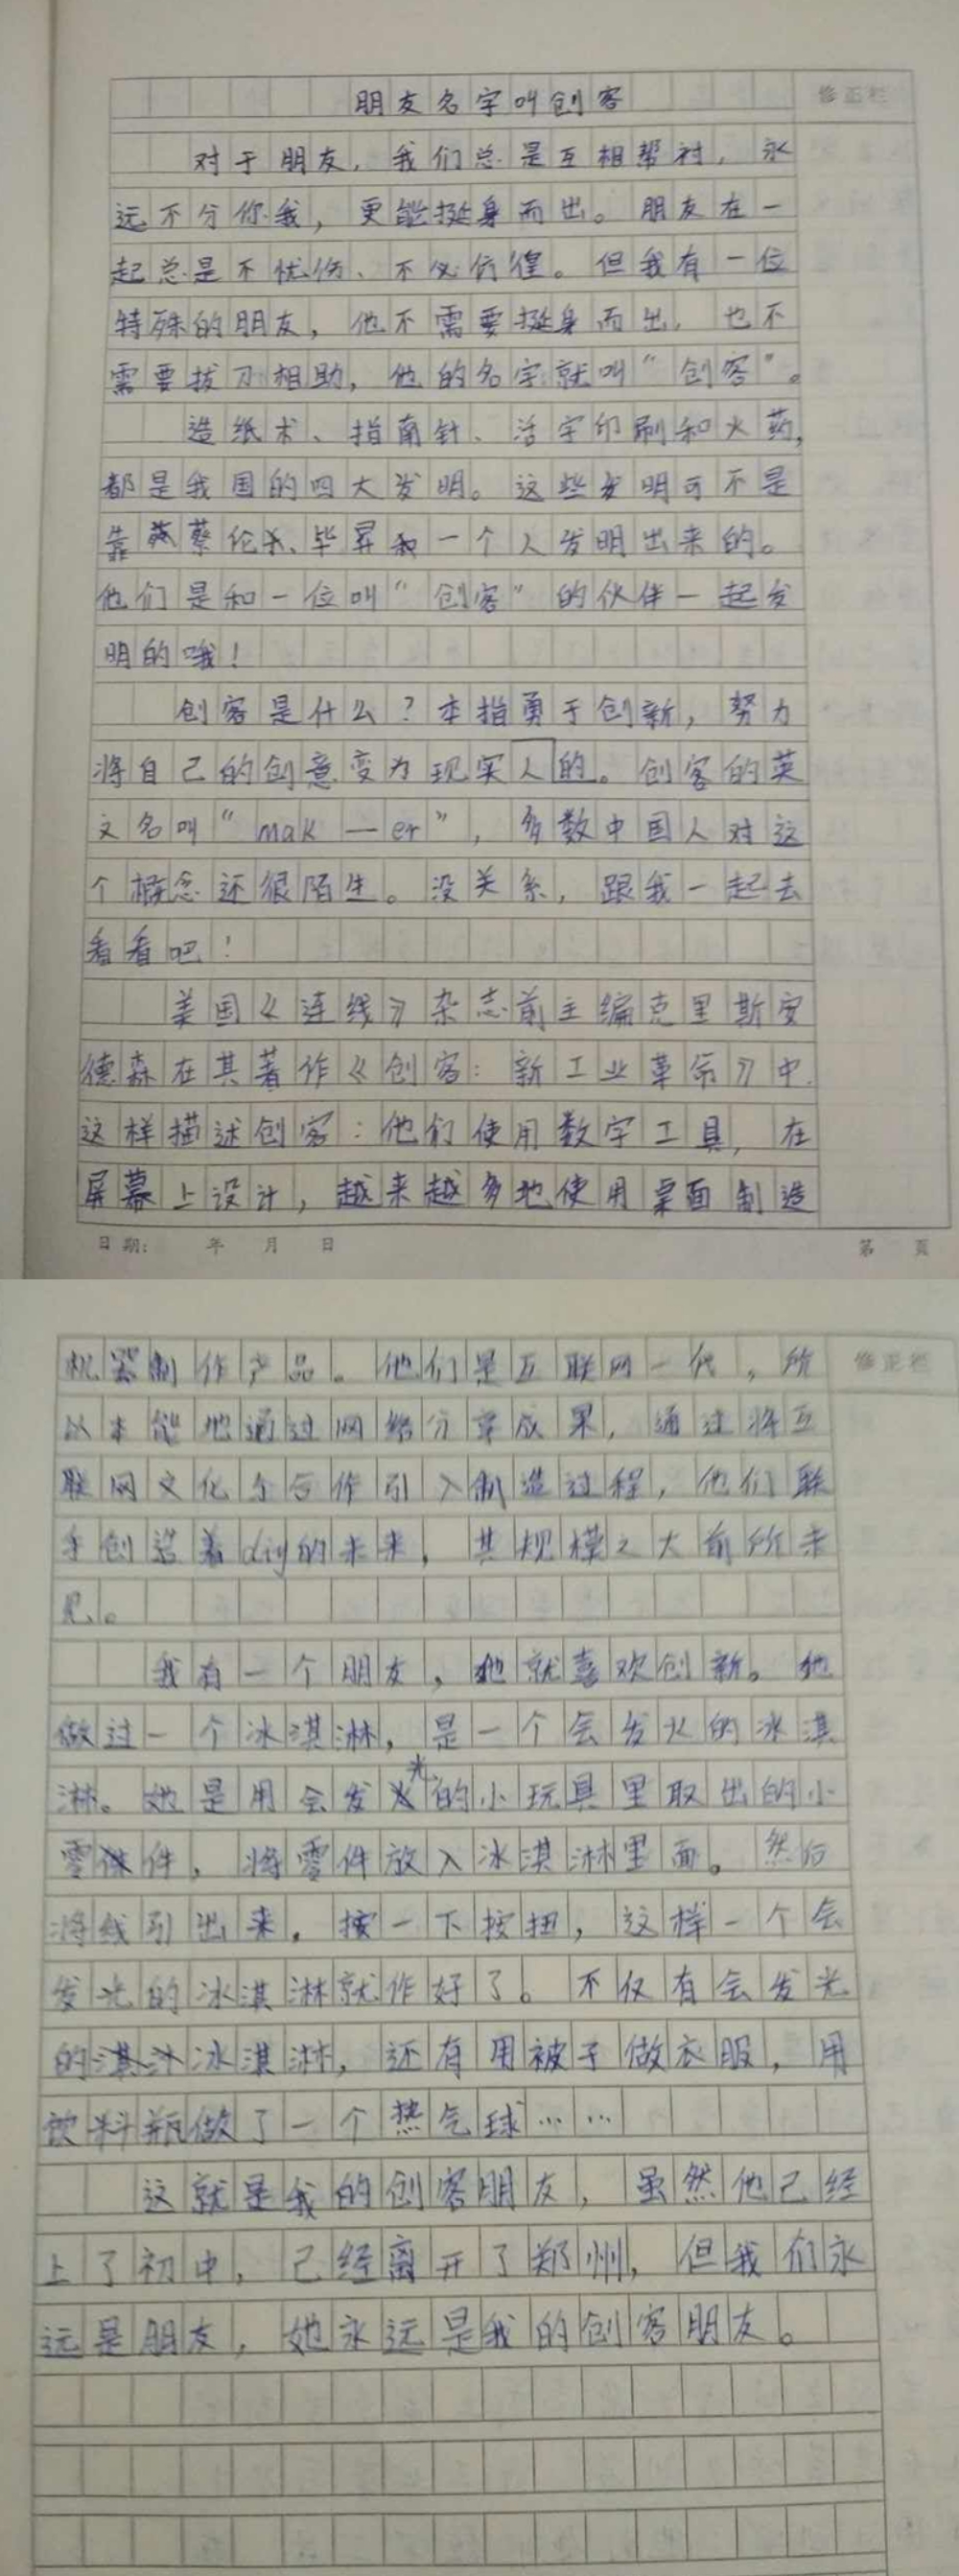 朋友名字叫创客
修正栏
对于朋友，我们总是互相帮衬，永
远不分你我，更能挺身而出。朋友在一
起总是不忧伤、不必彷徨。但我有一位
特殊的朋友，他不需要挺身而出，也不
需要拔刀相助，他的名字就叫“创客”。
造纸术、指南针、活字印刷和火药，
都是我国的四大发明。这些发明可不是
靠蔡伦、毕昇一个人发明出来的。
他们是和一位叫“创客”的伙伴一起发
明的哦！
创客是什么？本指勇于创新，努力
将自己的创意变为现实人的。创客的英
文名叫“mak—er”，多数中国人对这
个概念还很陌生。没关系，跟我一起去
看看吧！
美国《连线》杂志前主编克里斯安
德森在其著作《创客：新工业革命》中
这样描述创客：他们使用数字工具，在
屏幕上设计，越来越多地使用桌面制造
日期： 年 月 日
第 页
机器制作产品。他们是互联网一代，所
修正栏
以本能地通过网络分享成果，通过将互
联网文化与合作引入制造过程，他们联
手创造着diy的未来，其规模之大前所未
见。
我有一个朋友，她就喜欢创新。他
做过一个冰淇淋，是一个会发火的冰淇
淋。她是用会发光的小玩具里取出的小
零件，将零件放入冰淇淋里面。然后
将线引出来，按一下按扭，这样一个会
发光的冰淇淋就作好了。不仅有会发光
的冰淇淋，还有用被子做衣服，用
饮料瓶做了一个热气球……
这就是我的创客朋友，虽然他已经
上了初中，已经离开了郑州，但我们永
远是朋友，她永远是我的创客朋友。